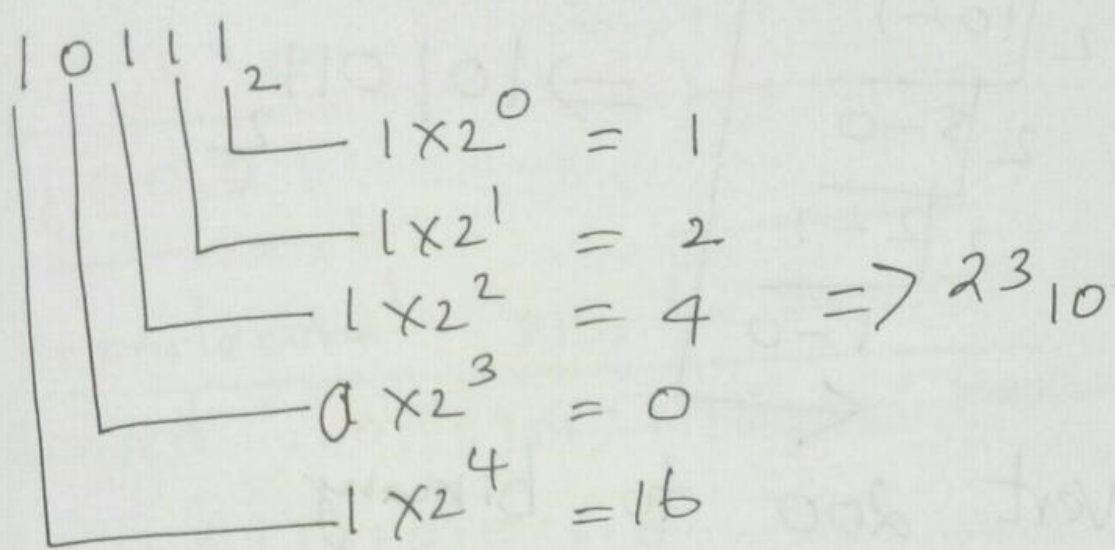 10111₂
1×2⁰ = 1
1×2¹ = 2
1×2² = 4 => 23₁₀
0×2³ = 0
1×2⁴ = 16